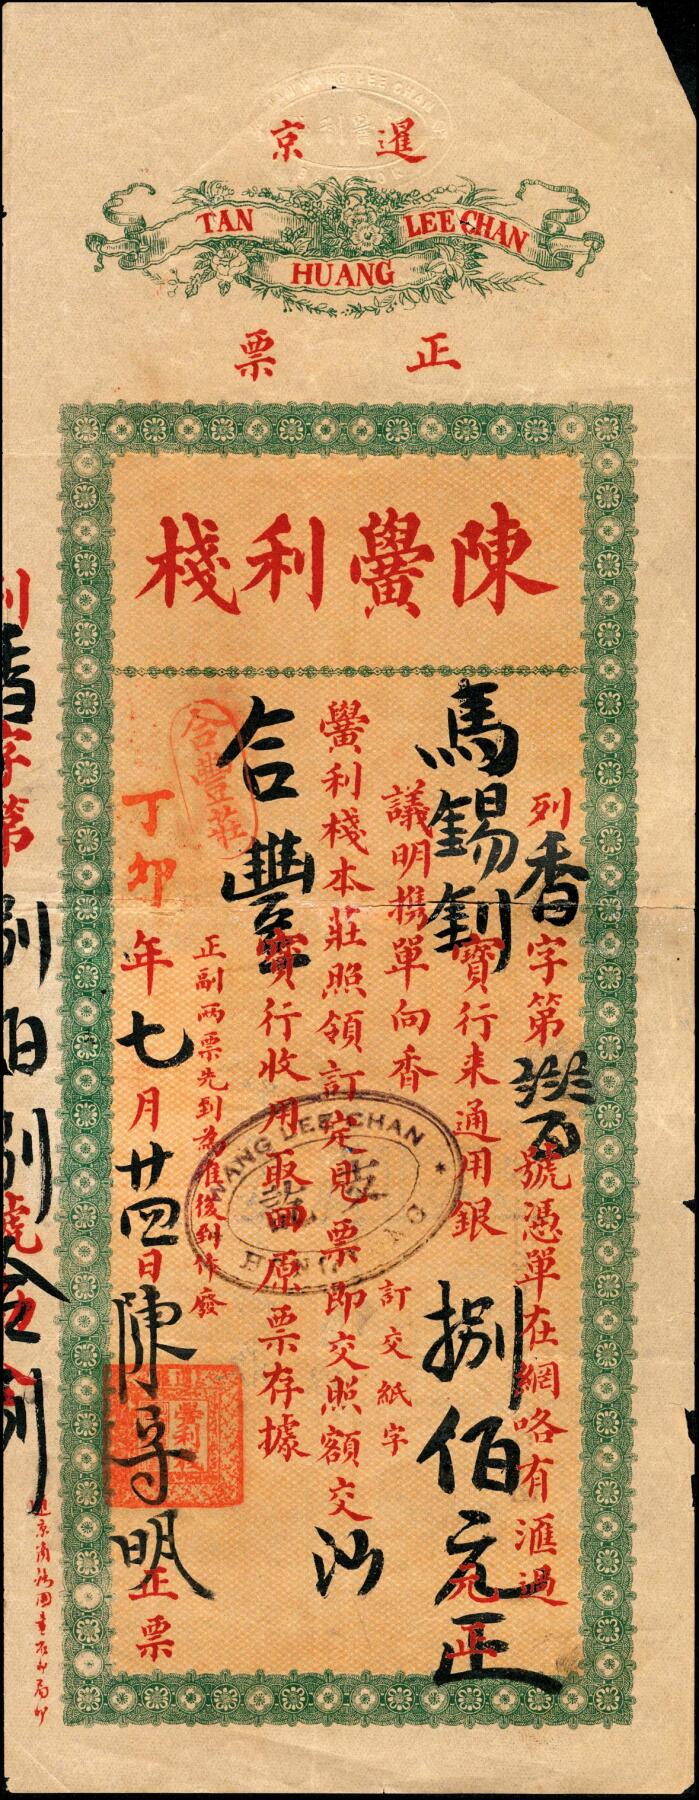 暹京
TAN HUANG LEE CHAN
正票
陳黌利棧
列香字第 號憑單在網咯有滙過
馬錫釗寶行来通用銀捌佰元正
議明携單向香
訂交紙字
黌利棧本莊照領訂定見票即交照額交汕
合豐寶行收用取回原票存據
正副两票先到為准後到作廢
合豐莊
丁卯年七月廿四日陳守明正票
WANG LEE CHAN
HONG KONG
黌利
字第
捌佰捌 號